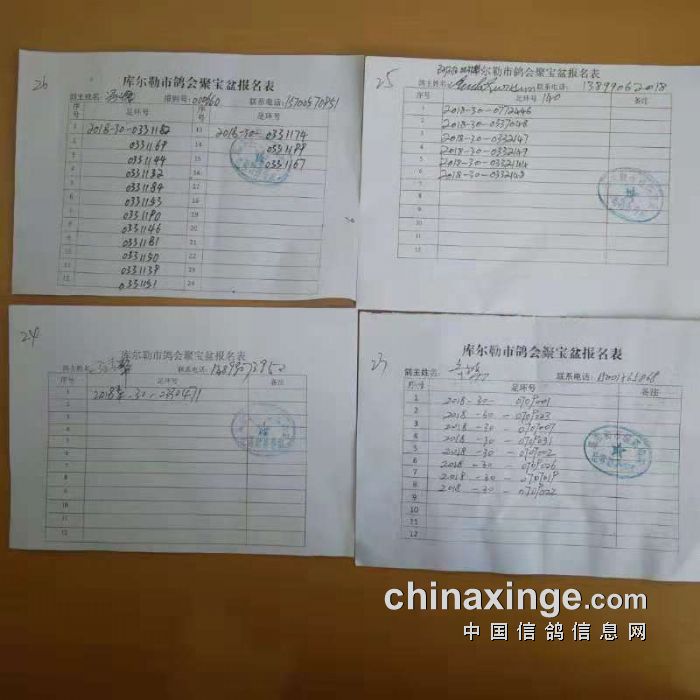 26
库尔勒市鸽会聚宝盆报名表
鸽主姓名: 棚号: 000360 联系电话: 15700570851
序号 足环号 序号 足环号
1 2018-30-0331182 13 2018-30-0331174
2 0331169 14 0331199
3 0331144 15 0331167
4 0331132 16
5 0331184 17
6 0331193 18
7 0331190 19
8 0331146 20
9 0331181 21
10 0331150 22
11 0331138 23
12 0331151 24
25
库尔勒市鸽会聚宝盆报名表
鸽主姓名: 联系电话: 13899062018
序号 足环号 140 备注
1 2018-30-0772446
2 2018-30-0337048
3 2018-30-0332147
4 2018-30-0332149
5 2018-30-0332144
6 2018-30-0332148
7
8
9
10
11
12
24
库尔勒市鸽会聚宝盆报名表
鸽主姓名: 联系电话:
序号 足环号 备注
1 2018-30-0330471
2
3
4
5
6
7
8
9
10
11
12
23
库尔勒市鸽会聚宝盆报名表
鸽主姓名: 联系电话:
序号 足环号 备注
1 2018-30-0709001
2 2018-30-0709023
3 2018-30-0709007
4 2018-30-0709031
5 2018-30-0709002
6 2018-30-0709026
7 2018-30-0709018
8 2018-30-0709022
9
10
11
12
chinaxinge.com
中国信鸽信息网